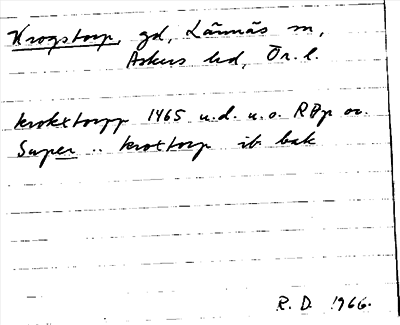 Krogstorp, gd, Lännäs sn,
Askers hd, Ör. l.
krokxtorpp 1465 u.d. u.o. RPp or.
Super .. kroxtorp ib bak
R.D. 1966.